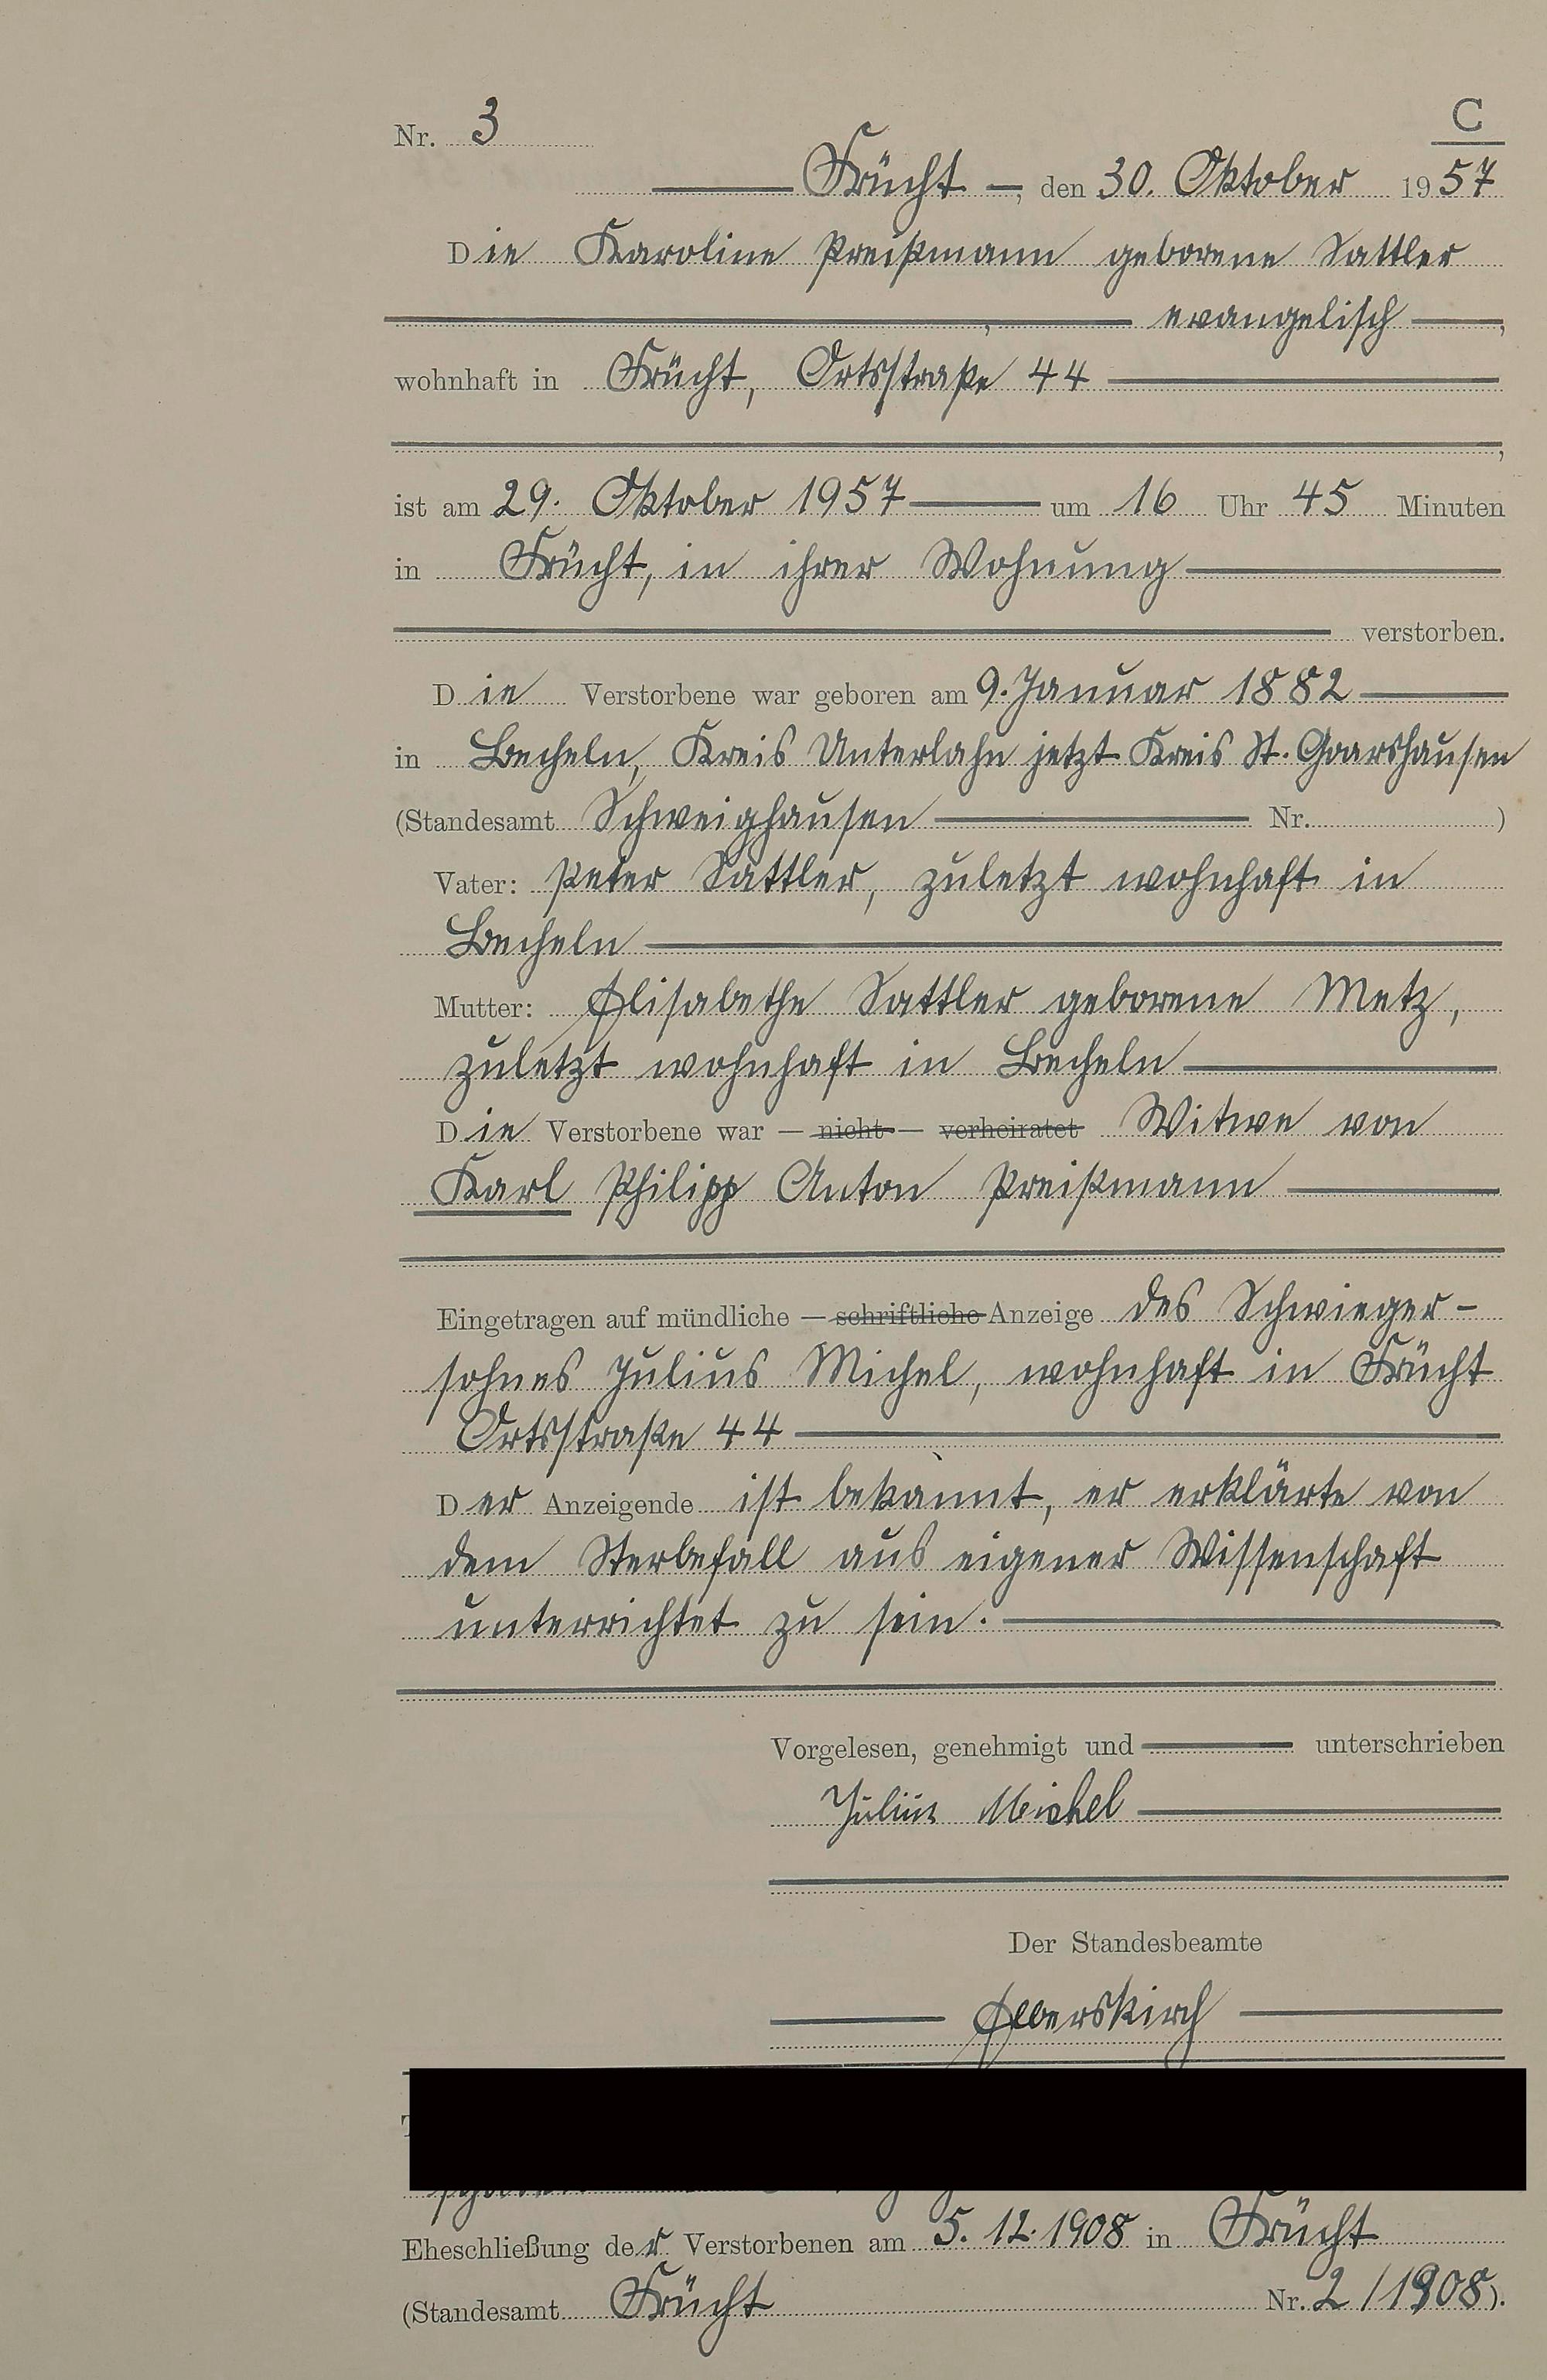 C
Nr. 3
Frücht, den 30. Oktober 1957
Die Karoline Preißmann geborene Sattler
, evangelisch,
wohnhaft in Frücht, Ortsstraße 44
,
ist am 29. Oktober 1957 um 16 Uhr 45 Minuten
in Frücht, in ihrer Wohnung
verstorben.
Die Verstorbene war geboren am 9. Januar 1882
in Becheln, Kreis Unterlahn jetzt Kreis St. Goarshausen
(Standesamt Schweighausen Nr. )
Vater: Peter Sattler, zuletzt wohnhaft in
Becheln
Mutter: Elisabethe Sattler geborene Metz,
zuletzt wohnhaft in Becheln
Die Verstorbene war — nicht — verheiratet Witwe von
Karl Philipp Anton Preißmann
Eingetragen auf mündliche — schriftliche Anzeige des Schwieger-
sohnes Julius Michel, wohnhaft in Frücht
Ortsstraße 44
Der Anzeigende ist bekannt, er erklärte von
dem Sterbefall aus eigener Wissenschaft
unterrichtet zu sein.
Vorgelesen, genehmigt und unterschrieben
Julius Michel
Der Standesbeamte
Eheschließung der Verstorbenen am 5. 12. 1908 in Frücht
(Standesamt Frücht Nr. 2/1908).